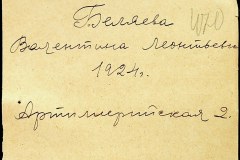 Беляева
Валентина Леонтьевн
1924г.
Артиллерийская 2.